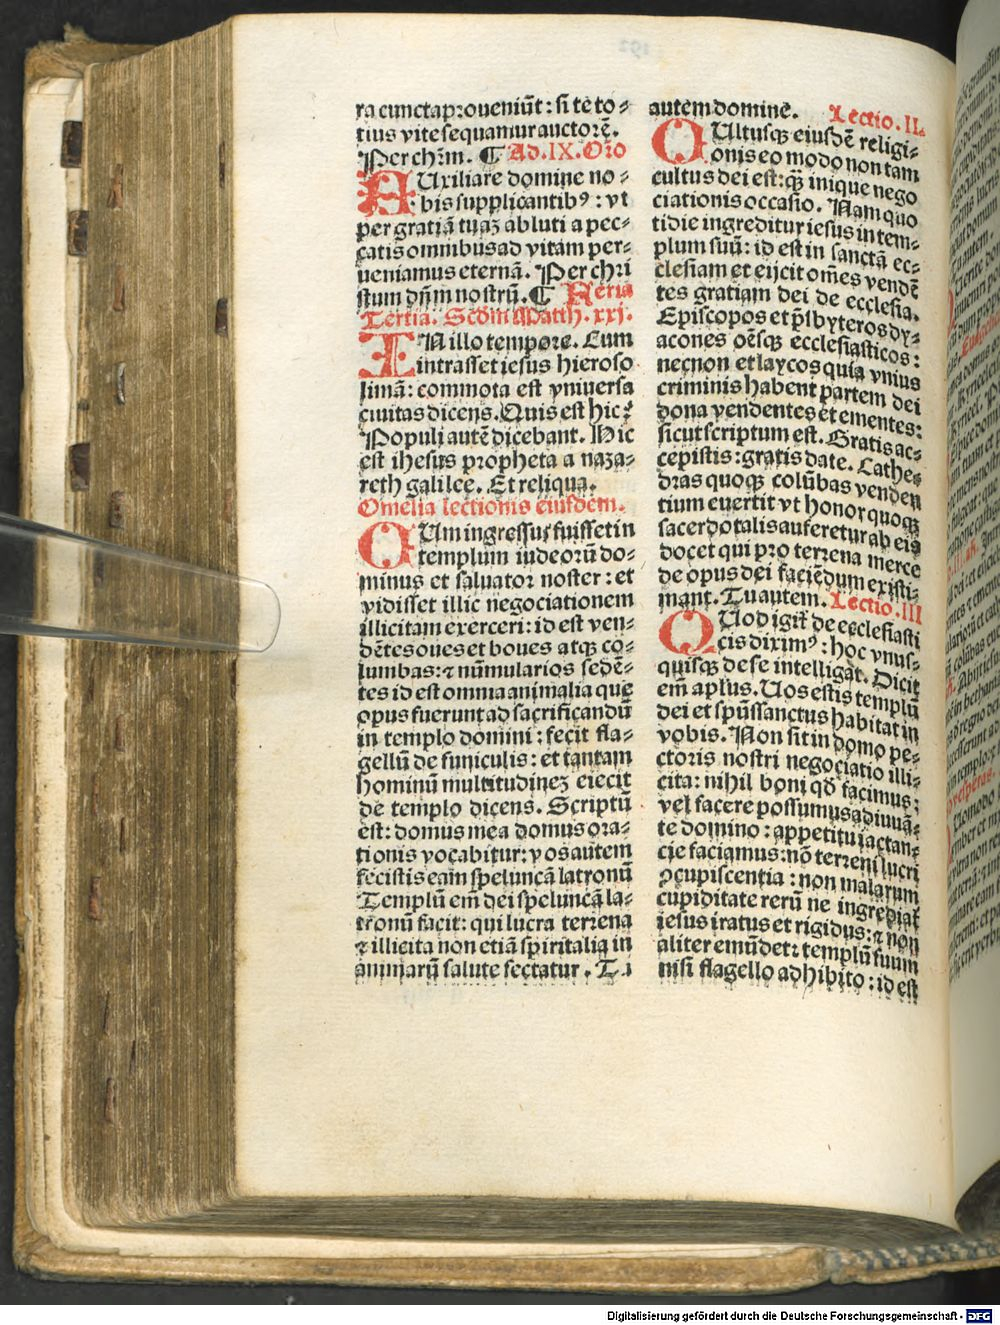 ra cuncta proueniũt: si te to-
tius vite sequamur auctorẽ.
Per chr̃m. ¶ Ad .IX. Orõ
AUxiliare domine no-
bis supplicantibꝰ: vt
per gratiã tuaʒ abluti a pec-
catis omnibus ad vitam per-
ueniamus eternã. Per chri
stum dñm nostrũ. ¶ Feria
Tertia. Scḋm Math. xxj.
IN illo tempore. Cum
intrasset iesus hieroso
limã: commota est vniuersa
ciuitas dicens. Quis est hic?
Populi autẽ dicebant. Hic
est ihesus propheta a naza-
reth galilee. Et reliqua.
Omelia lectionis eiusdem.
CUm ingressus fuisset in
templum iudeorũ do-
minus et saluator noster: et
vidisset illic negociationem
illicitam exerceri: id est ven-
dẽtes oues et boues atqꝫ co-
lumbas: ⁊ nũmularios sedẽ-
tes id est omnia animalia que
opus fuerunt ad sacrificandũ
in templo domini: fecit fla-
gellũ de funiculis: et tantam
hominũ multitudinez eiecit
de templo dicens. Scriptũ
est: domus mea domus ora-
tionis vocabitur: vos autem
fecistis eam speluncã latronũ
Templũ em̃ dei speluncã la-
tronũ facit: qui lucra terrena
⁊ illicita non etiã spiritalia in
animarũ salute sectatur. Tu
autem dominẽ. Lectio .II.
CUltusqꝫ eiusdẽ religi-
onis eo modo non tam
cultus dei est: qꝫ̃ inique nego
ciationis occasio. Nam quo
tidie ingreditur iesus in tem-
plum suũ: id est in sanctã ec-
clesiam et eijcit om̃es vendẽ
tes gratiam dei de ecclesia.
Episcopos et p̃sbyteros dy-
acones oẽsqꝫ ecclesiasticos:
necnon et laycos quia vnius
criminis habent partem dei
dona vendentes et ementes:
sicut scriptum est. Gratis ac-
cepistis: gratis date. Cathe-
dras quoqꝫ colũbas venden
tium euertit vt honor quoqꝫ
sacerdotalis auferetur ab eis
docet qui pro terrena merce
de opus dei faciẽdum existi-
mant. Tu autem. Lectio .III
QUod igit̃ de ecclesiasti
cis diximꝰ: hoc vnus-
quisqꝫ de se intelligat. Dicit
em̃ aplus. Uos estis templũ
dei et spũssanctus habitat in
vobis. Non sit in domo pe-
ctoris nostri negociatio illi-
cita: nihil boni qd̃ facimus:
vel facere possumus adiuuã-
te domino: appetitu iactan-
cie faciamus: nõ terreni lucri
ꝯcupiscentia: non malarum
cupiditate rerũ ne ingrediat̃
iesus iratus et rigidus: ⁊ non
aliter emũdet: templũ suum
nisi flagello adhibito: id est
Digitalisierung gefördert durch die Deutsche Forschungsgemeinschaft - DFG